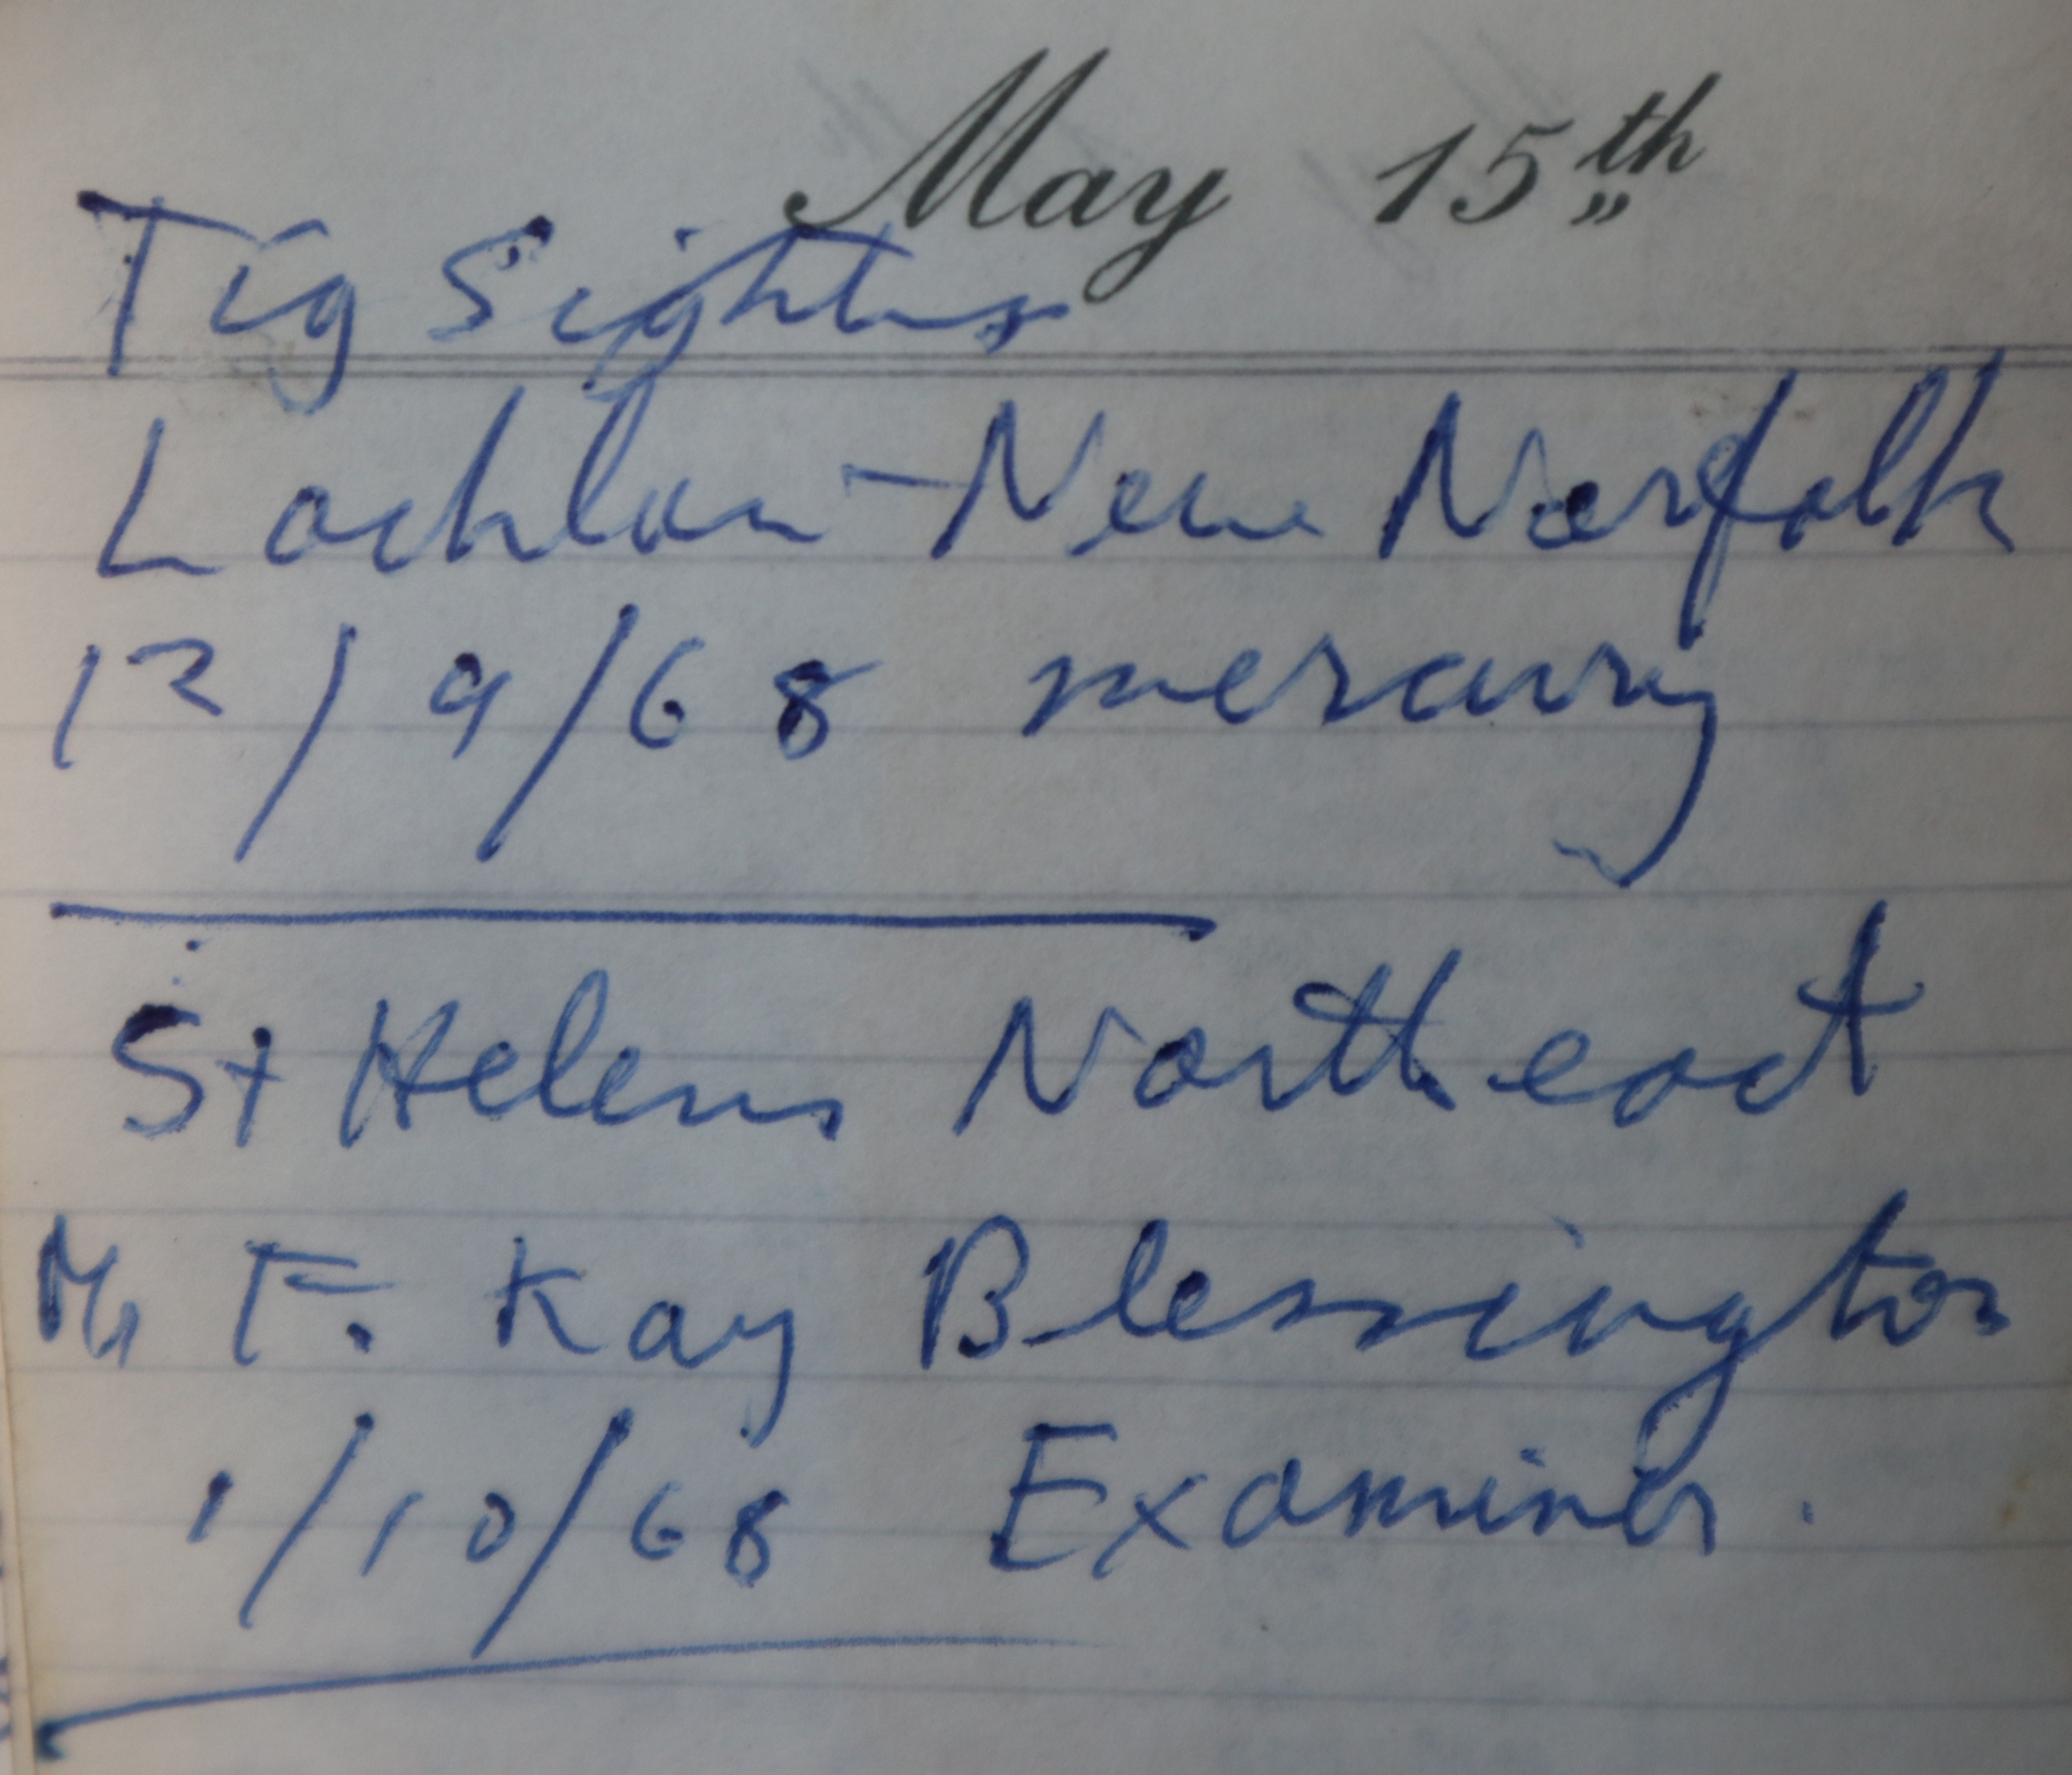 May 15th
Tig Sightings
Lachlan - New Norfolk
12/9/68 mercury
St Helens North east
Mr F. Kay Blessington
1/10/68 Examiner.